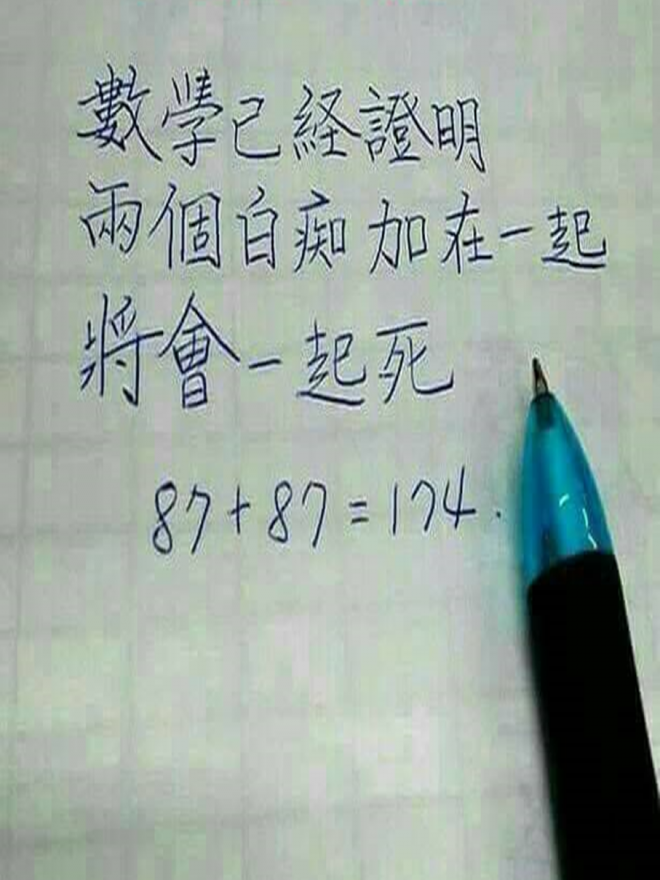 數學已経證明
兩個白痴加在一起
將會一起死
87+87=174.